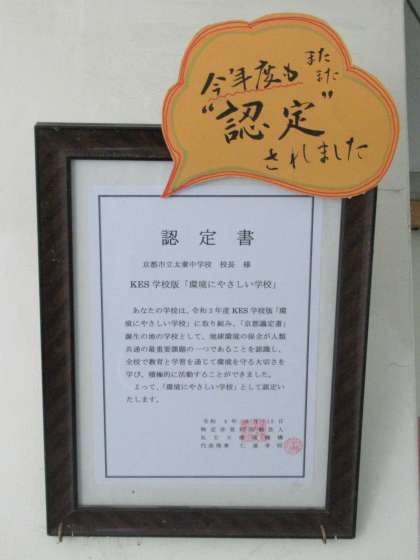 今年度も
またまた
"認定"
されました
認定書
京都市立太秦中学校 校長 様
KES学校版「環境にやさしい学校」
あなたの学校は、令和3年度KES学校版「環
境にやさしい学校」に取り組み、「京都議定書」
誕生の地の学校として、地球環境の保全が人類
共通の最重要課題の一つであることを認識し、
全校で教育と学習を通じて環境を守る大切さを
学び、積極的に活動することができました。
よって、「環境にやさしい学校」として認定い
たします。
特定非営利活動法人